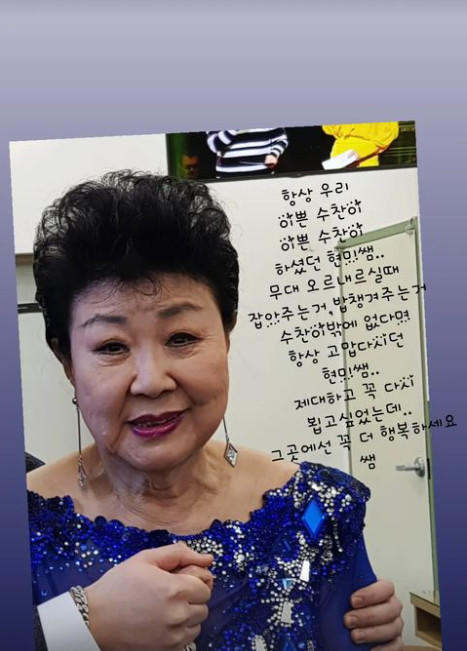 항상 우리
이쁜 수찬이
이쁜 수찬이
하셨던 현미쌤..
무대 오르내르실때
잡아주는거,밥챙겨주는거
수찬이밖에 없다면
항상 고맙다시던
현미쌤..
제대하고 꼭 다시
뵙고싶었는데..
그곳에선 꼭 더 행복하세요
쌤